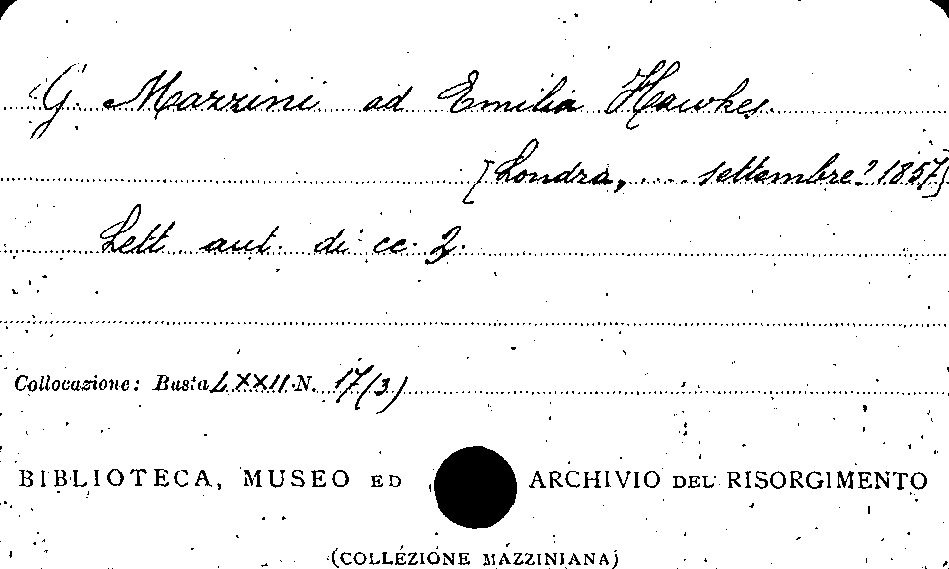 G. Mazzini ad Emilia Hawkes.
[Londra, .... settembre? 1857]
Lett. aut. di cc. 2.
Collocazione: Busta LXXII N. 17(3)
BIBLIOTECA, MUSEO ED ARCHIVIO DEL RISORGIMENTO
(COLLEZIONE MAZZINIANA)